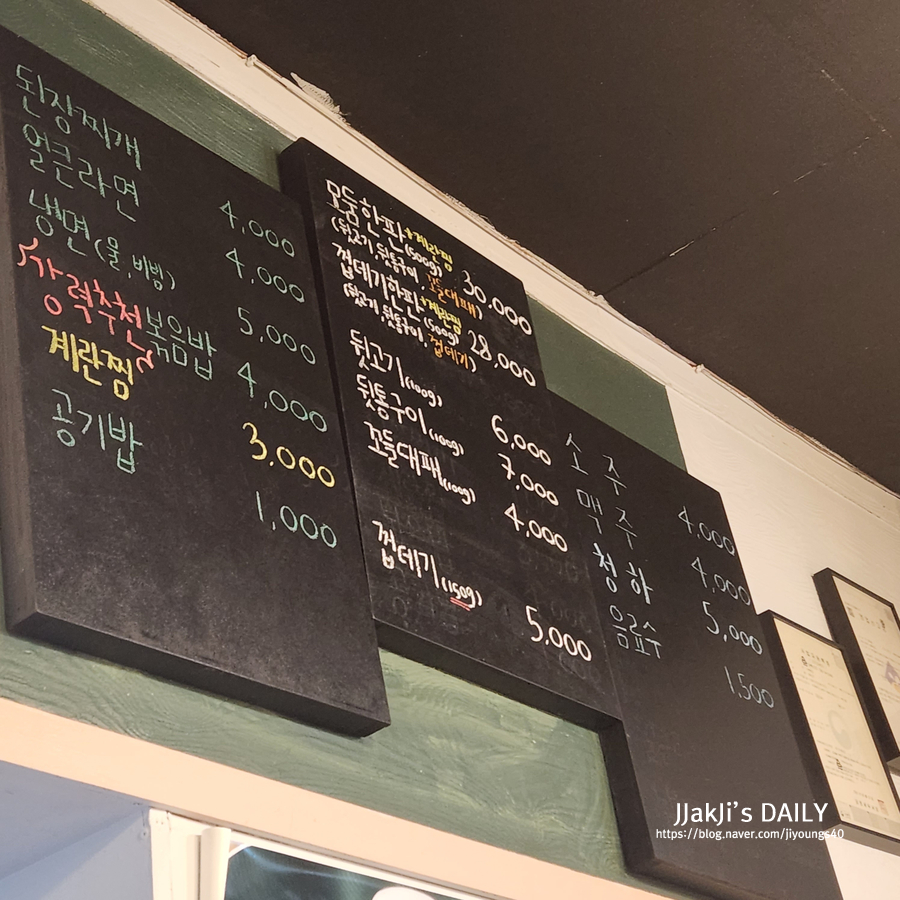 된장찌개 4,000
얼큰라면 4,000
냉면(물,비빔) 5,000
강력추천 볶음밥 4,000
계란찜 3,000
공기밥 1,000
모둠한판+계란찜 30,000
(뒷고기,뒷통구이,꼬들대패) (500g)
껍데기한판+계란찜 28,000
(뒷고기,뒷통구이,껍데기) (500g)
뒷고기(100g) 6,000
뒷통구이(100g) 7,000
꼬들대패(100g) 4,000
껍데기(150g) 5,000
소주 4,000
맥주 4,000
청하 5,000
음료수 1,500
JJakJi's DAILY
https://blog.naver.com/jiyoungs40